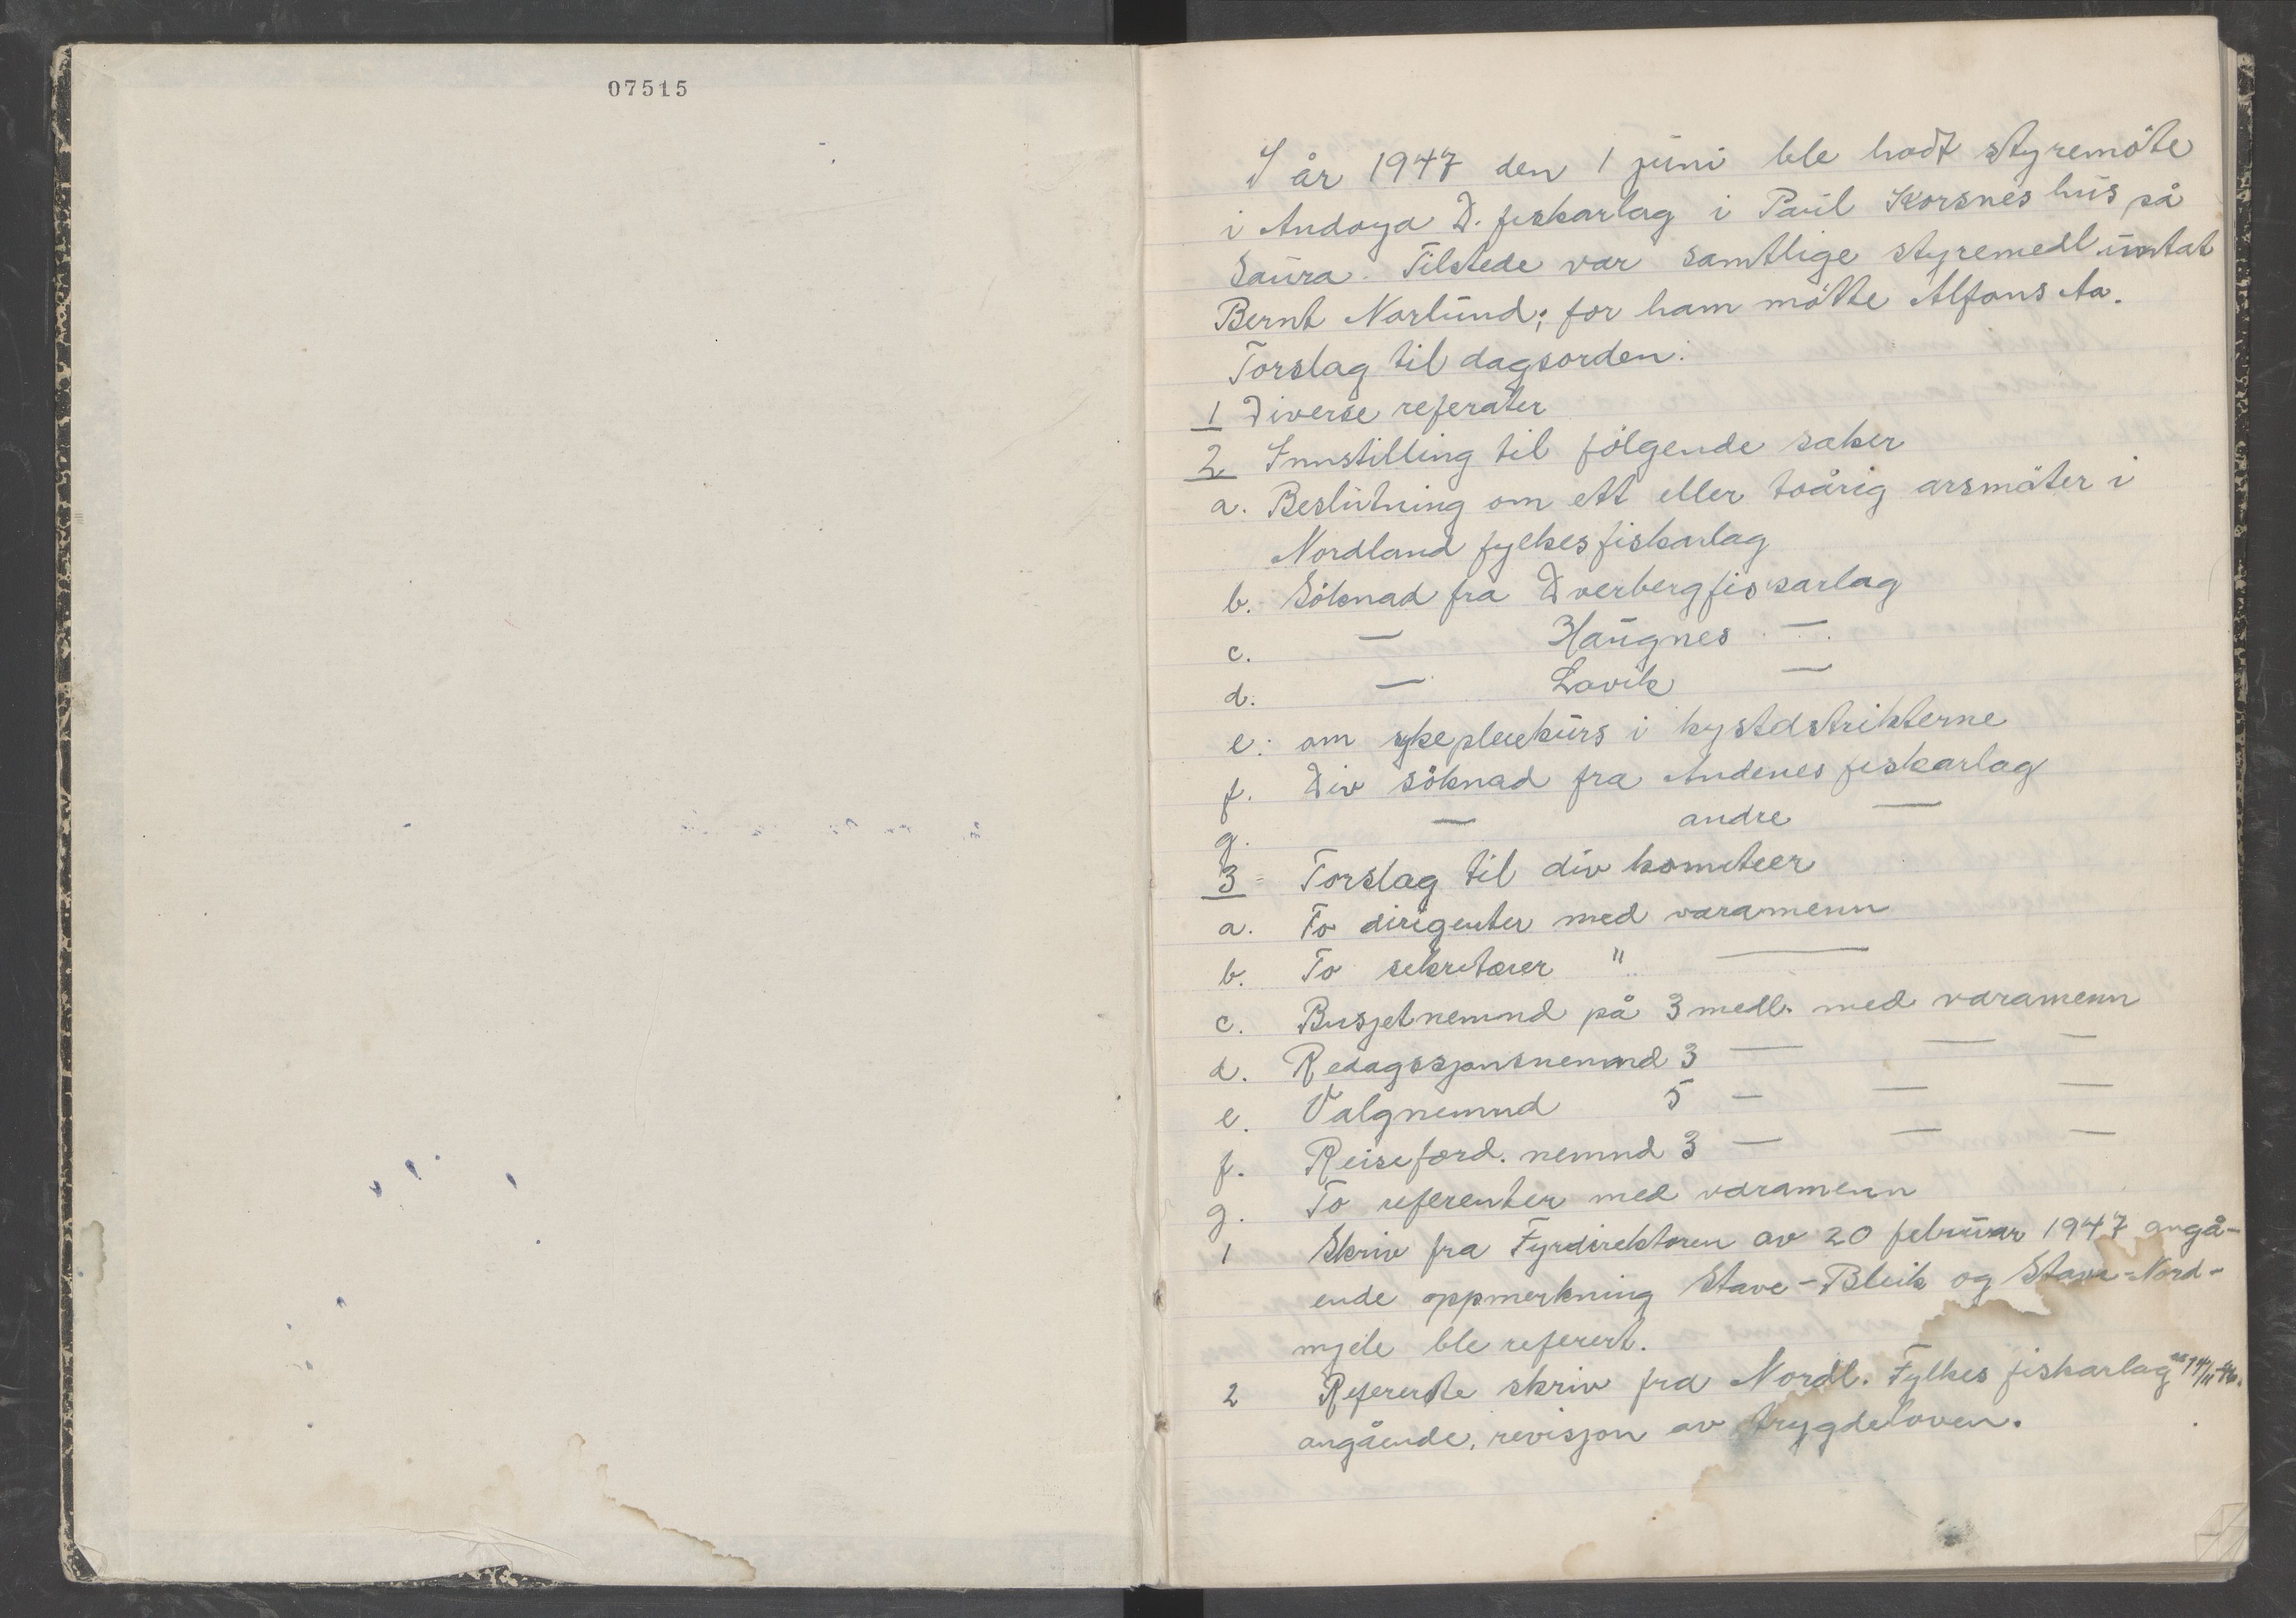 07515
I år 1947 den 1 juni ble hodt styremöte
i Andöya D. fiskarlag i Paul Korsnes hus på
Saura. Tilstede var samtlige styremedl. untat
Bernt Norlund; for ham mötte Alfons Aa.
Forslag til dagsorden:
1 Diverse referater
2 Innstilling til fölgende saker
a. Beslutning om ett eller toårig arsmöter i
Nordland fylkes fiskarlag
b. Söknad fra Dverberg fiskarlag
c. — Haugnes —
d. — Lovik —
e. om sykepleiekurs i kystdstrikterne
f. Div söknad fra Andenes fiskarlag
g. — andre —
3 Forslag til div komiteer
a. To dirigenter med varamenn
b. To sekretærer " —
c. Busjetnemnd på 3 medl. med varamenn
d. Redagssjonsnemnd 3 — — —
e. Valgnemnd 5 — — —
f. Reiseford. nemnd 3 — — —
g. To referenter med varamenn
1 Skriv fra Fyrdirektoren av 20 februar 1947 angå-
ende oppmerkning Stave-Bleik og Stave-Nord-
mjele ble referert.
2 Refererte skriv fra Nordl. Fylkes fiskarlag av 14/11-46.
angående, revisjon av trygdeloven.